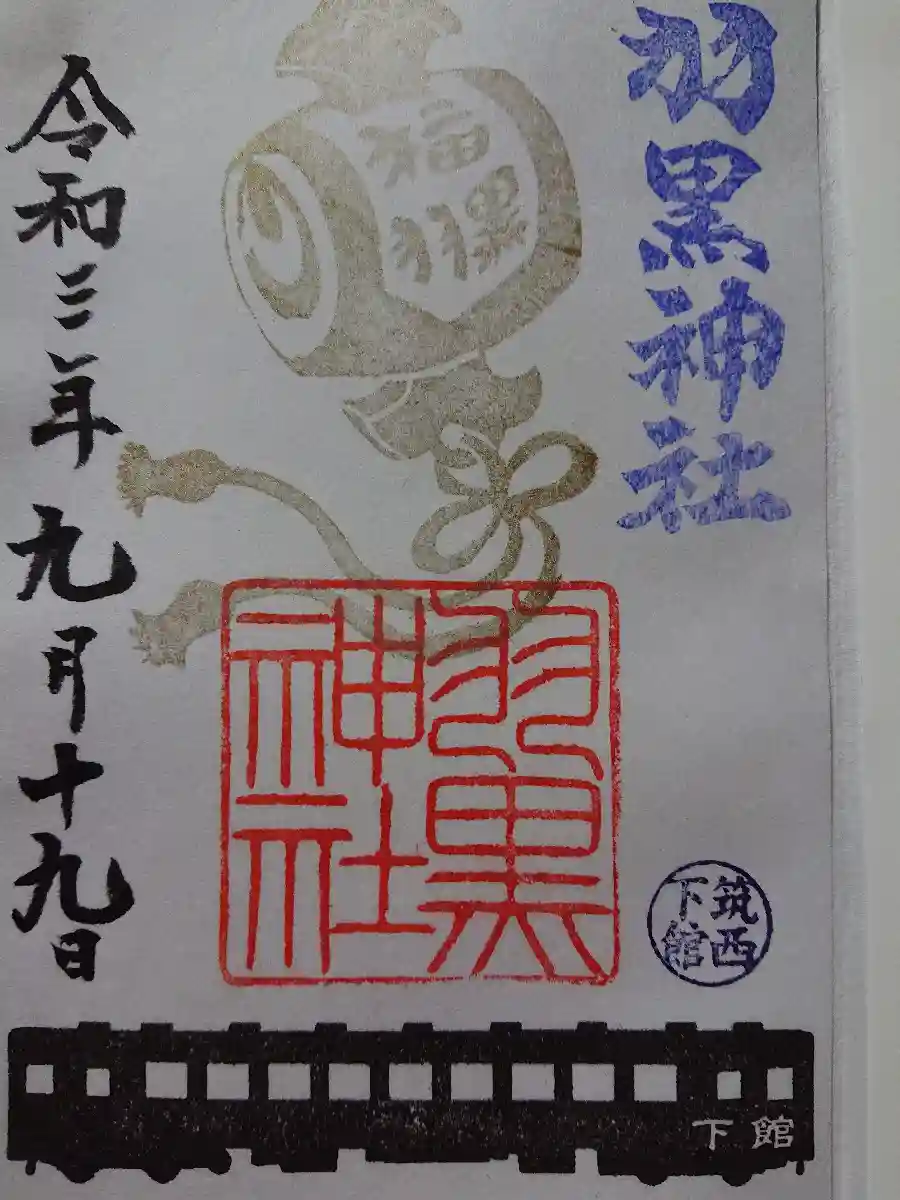 羽黒神社
福
羽黒
羽黒
神社
令和三年九月十九日
筑西
下館
下館